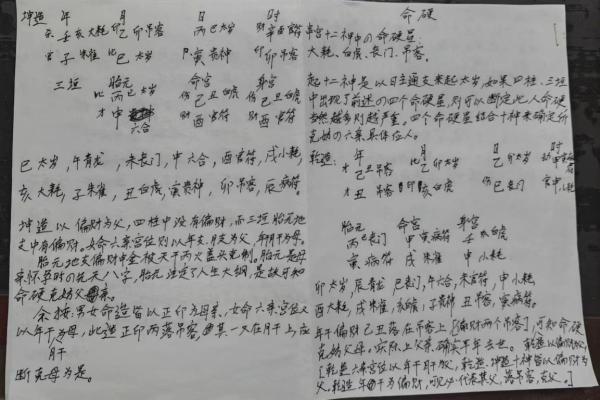 坤造 年 月 日 时
亥 壬 亥大耗 乙 卯吊客 丙 巳太岁 财辛酉官符
官 子 朱雀 比 巳 太岁 寅丧神 印卯吊客
三垣 胎元 命宫 身宫
比丙巳太岁 伤己丑白虎 伤己丑白虎
才申 六合 财酉官符 财酉官符
巳太岁,午青龙,未丧门,申六合,酉官符,戌小耗,
亥大耗,子朱雀,丑白虎,寅丧神,卯吊客,辰病符。
坤造以偏财为父,四柱中没有偏财,而三垣胎元地
支中有偏财。女命六亲宫位则以年支、月支为父,年干月干为母。
胎元地支偏财申金被天干丙火盖头克制。胎元是母
亲怀孕时的先天八字,胎元注定了人生大纲,是故可知
命硬克妨父亲。
余按:男女命造皆以正印为母亲,女命六亲宫位又
以年干月干为母,此造正印两落吊客,因其一又在月干上,应
断克母为是。
命硬
串宫十二神中の命硬星:
大耗、白虎、丧门、吊客。
起十二神是以日主通支来起太岁,如果四柱、三垣
中出现了前述の四个命硬星,则可以断定此人命硬
当然越多则越严重。四个命硬星结合十神来确定所
克妨の六亲具体应人。
乾造: 年 月 日 时
才己丑吊客 乙卯太岁 乙卯太岁
才丑吊客 印亥白虎 伤巳丧门 官申小耗
胎元 命宫 身宫
丙巳丧门 甲寅病符 壬亥白虎
寅病符 戌朱雀 申小耗
卯太岁,辰青龙,巳丧门,午六合,未官符,申小耗,
酉大耗,戌朱雀,亥白虎,子丧神,丑吊客,寅病符。
年干偏财己丑落在吊客上【偏财两个吊客】,可知命硬
克妨父母。实际上父亲确实早年去世。
【乾造六亲宫位以年干月干为父,乾造、坤造十神皆以偏财为
父,乾造年干为偏财,代表其父,落吊客,克父。】